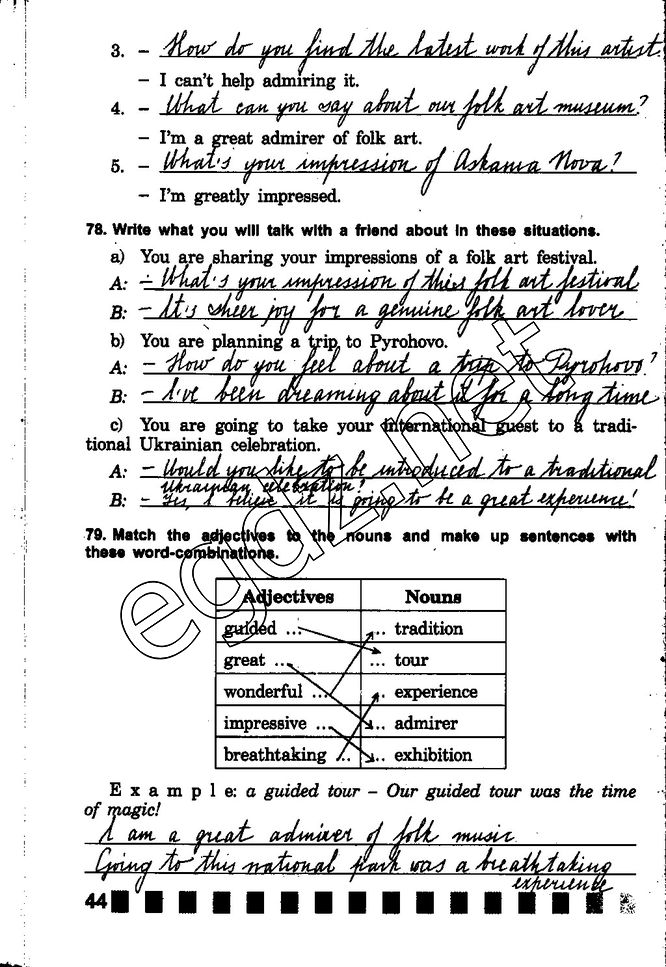 3. – How do you find the latest work of this artist.
– I can't help admiring it.
4. – What can you say about our folk art museum?
– I'm a great admirer of folk art.
5. – What's your impression of Askania Nova?
– I'm greatly impressed.
78. Write what you will talk with a friend about in these situations.
a) You are sharing your impressions of a folk art festival.
A: – What's your impression of this folk art festival
B: – It's sheer joy for a genuine folk art lover
b) You are planning a trip to Pyrohovo.
A: – How do you feel about a trip to Pyrohovo?
B: – I've been dreaming about it for a long time
c) You are going to take your international guest to a tradi-
tional Ukrainian celebration.
A: – Would you like to be introduced to a traditional
Ukrainian celebration?
B: – Yes, I believe it is going to be a great experience!
79. Match the adjectives to the nouns and make up sentences with
these word-combinations.
Adjectives Nouns
guided ... ... tradition
great ... ... tour
wonderful ... ... experience
impressive ... ... admirer
breathtaking ... ... exhibition
Example: a guided tour – Our guided tour was the time
of magic!
I am a great admirer of folk music
Going to this national park was a breathtaking
experience
44
egdz.net